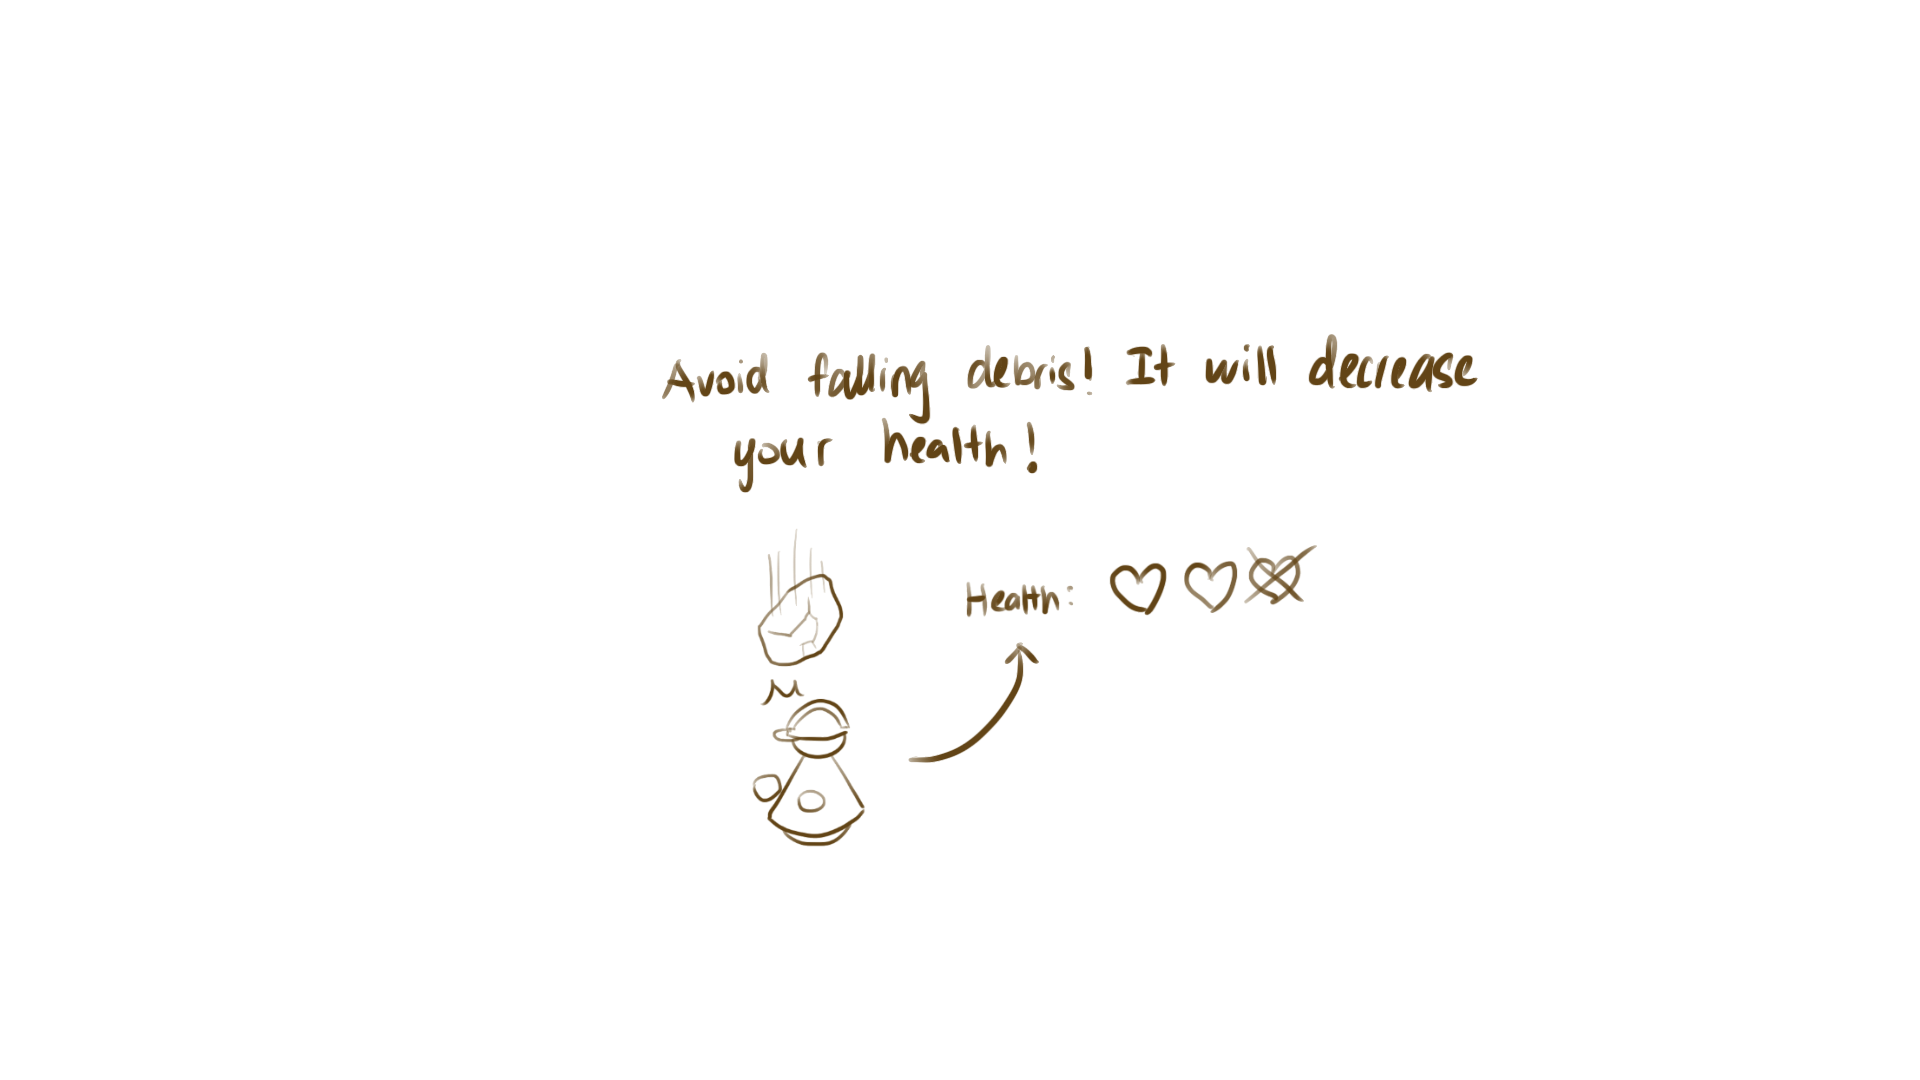 Avoid falling debris! It will decrease
your health!
Health: